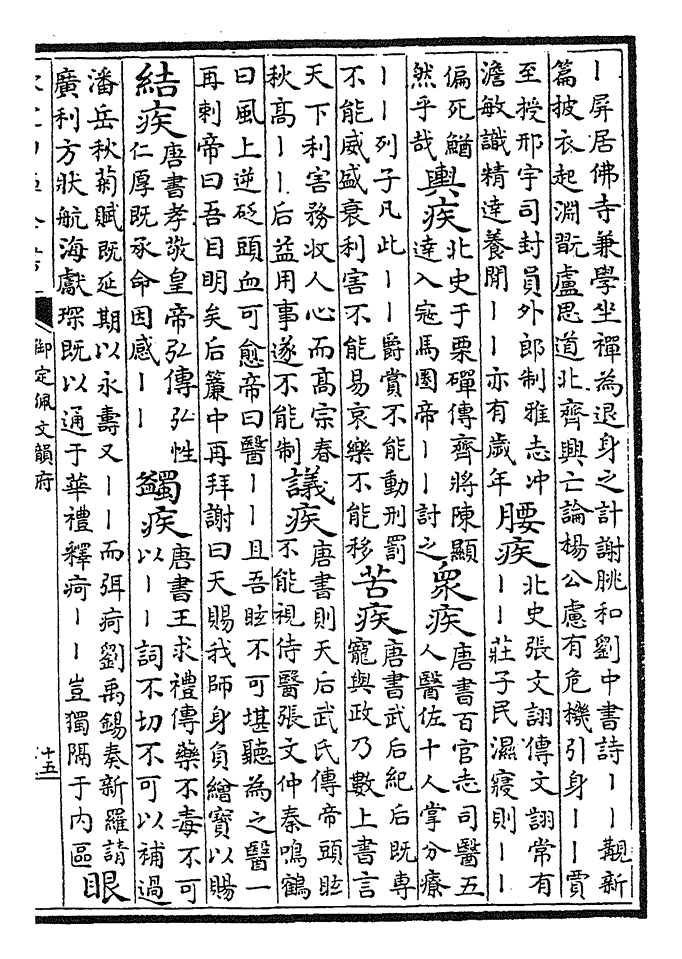 丨屏居佛寺兼學坐禪為退身之計謝朓和劉中書詩丨丨覯新
篇披衣起淵翫盧思道北齊興亡論楊公慮有危機引身丨丨賈
至授邢宇司封員外郎制雅志冲
澹敏識精達養閒丨丨亦有歲年
腰疾
北史張文詡傳文詡常有
丨丨莊子民濕寢則丨丨
偏死鰌
然乎哉
輿疾
北史于栗磾傳齊將陳顯
達入寇馬圈帝丨丨討之
衆疾
唐書百官志司醫五
人醫佐十人掌分療
丨丨列子凡此丨丨爵賞不能動刑罰
不能威盛衰利害不能易哀樂不能移
苦疾
唐書武后紀后既專
寵與政乃數上書言
天下利害務收人心而高宗春
秋高丨丨后益用事遂不能制
議疾
唐書則天后武氏傳帝頭眩
不能視侍醫張文仲秦鳴鶴
曰風上逆砭頭血可愈帝曰醫丨丨且吾眩不可堪聽為之醫一
再刺帝曰吾目明矣后簾中再拜謝曰天賜我師身負繒寶以賜
結疾
唐書孝敬皇帝弘傳弘性
仁厚既承命因感丨丨
蠲疾
唐書王求禮傳藥不毒不可
以丨丨詞不切不可以補過
潘岳秋菊賦既延期以永壽又丨丨而弭痾劉禹錫奏新羅請
廣利方狀航海獻琛既以通于華禮釋痾丨丨豈獨隔于内區
眼
御定佩文韻府
十五